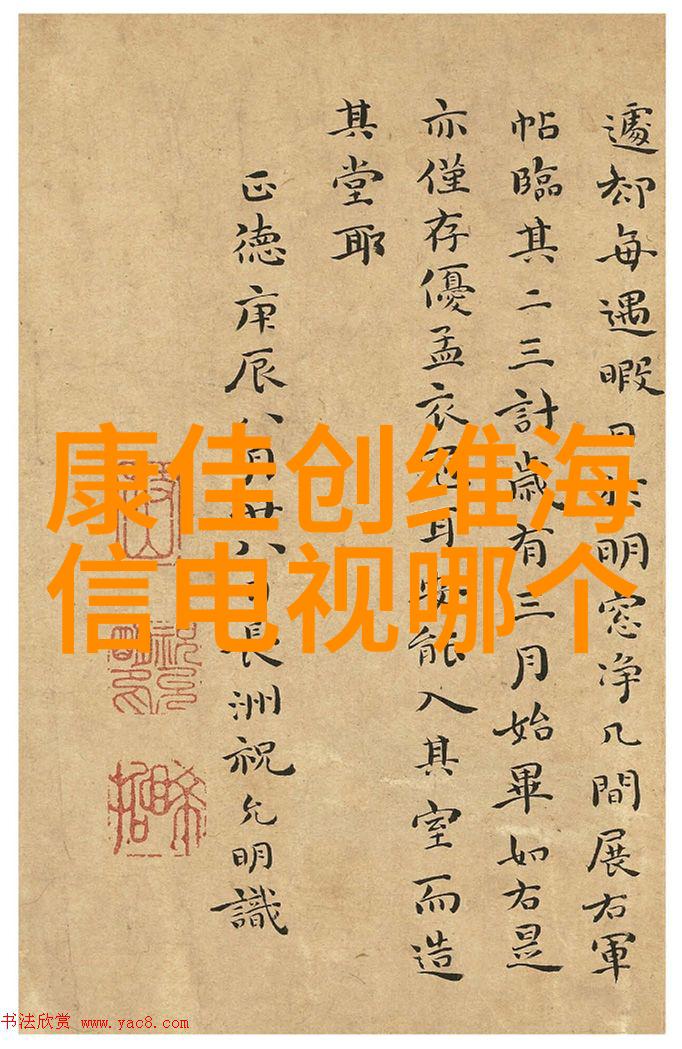 遽却每遇暇日於明窓净几間展右軍
帖臨其二三計歲有三月始畢如右是
亦僅存優孟衣冠耳安能入其室而造
其堂耶
正德庚辰八月廿八日長洲祝允明識
康佳创维海
信电视哪个
书法欣赏 www.yac8.com